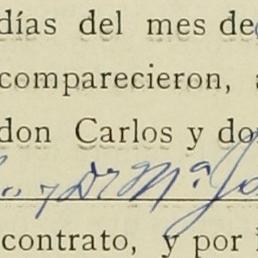 días del mes de
comparecieron,
don Carlos y do
y Dª Mª Jo
contrato, y por